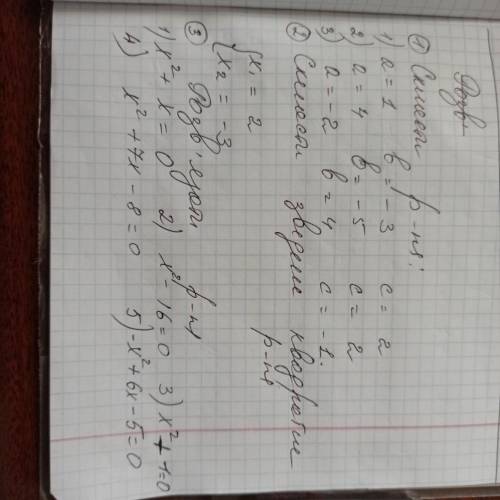 Розв
① Скласти р-ня:
1) a = 1 b = -3 c = 2
2) a = 4 b = -5 c = 2
3) a = -2 b = 4 c = -1.
② Скласти зведене квадратне р-ня
{x₁ = 2
{x₂ = -3
③ Розв'язати р-ня
1) x² + x = 0 2) x² - 16 = 0 3) x² + 1 = 0
4) x² + 7x - 8 = 0 5) -x² + 6x - 5 = 0